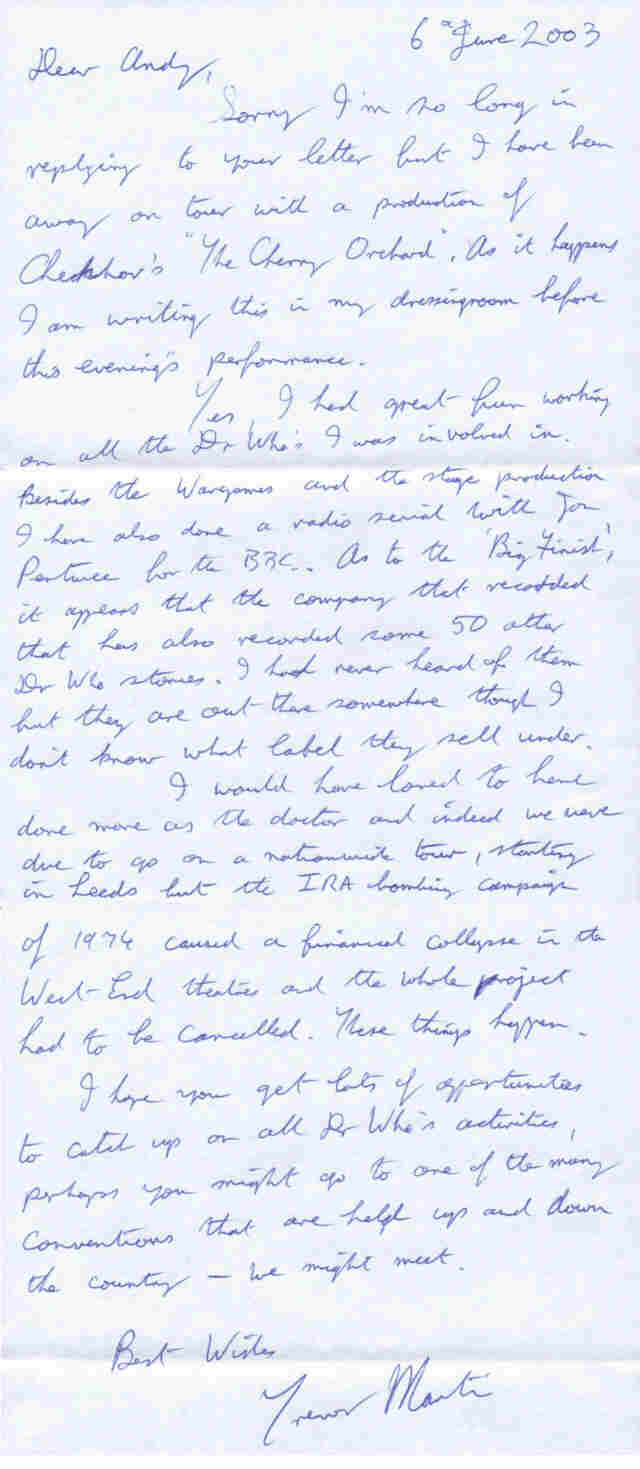 6th June 2003
Dear Andy,
Sorry I'm so long in
replying to your letter but I have been
away on tour with a production of
Checkhov's "The Cherry Orchard". As it happens
I am writing this in my dressingroom before
this evening's performance.
Yes, I had great fun working
on all the Dr Who's I was involved in.
Besides the Wargames and the stage production
I have also done a radio serial with Jon
Pertwee for the BBC. As to the 'Big Finish',
it appears that the company that recorded
that has also recorded some 50 other
Dr Who stories. I had never heard of them
but they are out there somewhere though I
don't know what label they sell under.
I would have loved to have
done more as the doctor and indeed we were
due to go on a nationwide tour, starting
in Leeds but the IRA bombing campaign
of 1974 caused a financial collapse in the
West-End theatres and the whole project
had to be cancelled. These things happen.
I hope you get lots of opportunities
to catch up on all Dr Who's activities,
perhaps you might go to one of the many
conventions that are held up and down
the country – we might meet.
Best Wishes
Trevor Martin